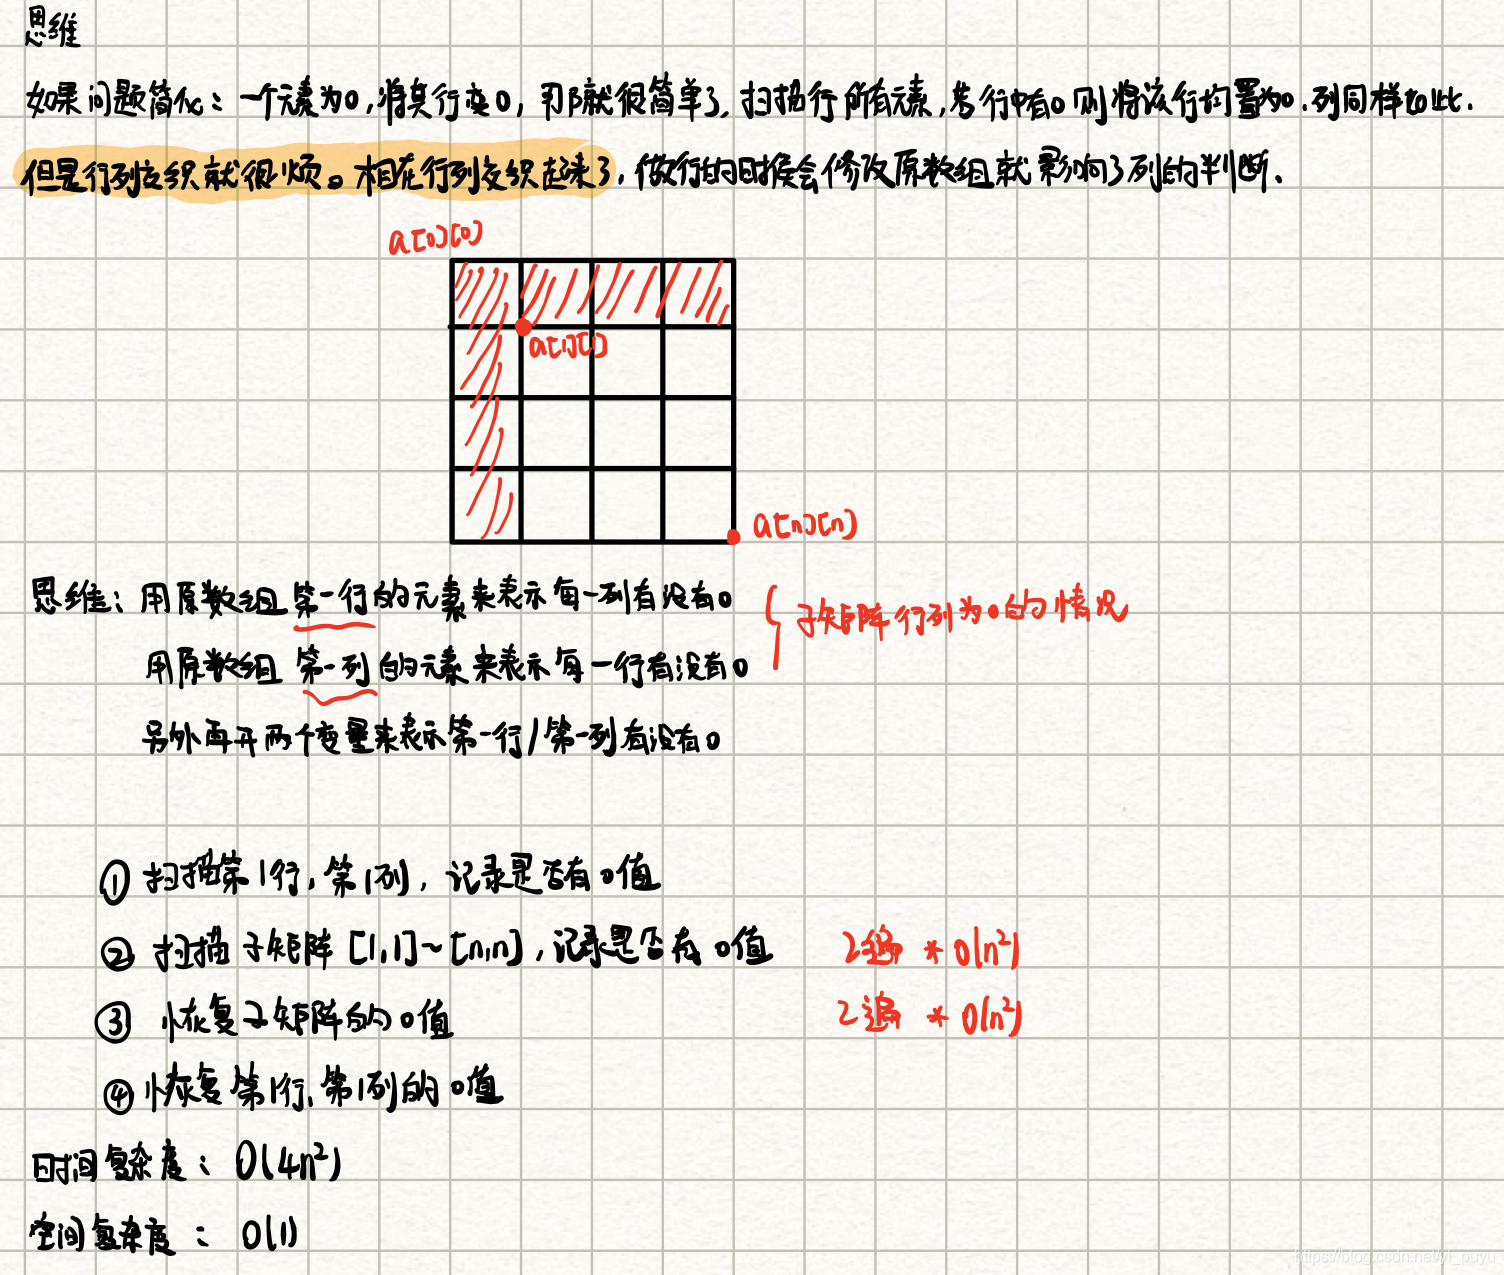 思维
如果问题简化：一个元素为0,将其行变0，那就很简单了,扫描行所有元素,若行中有0则将该行均置为0.列同样如此.
但是行列交织就很烦。相在行列交织起来了,做行的时候会修改原数组就影响了列的判断.
a[0][0]
a[1][1]
a[n][n]
思维：用原数组第一行的元素来表示每一列有没有0
用原数组第一列的元素来表示每一行有没有0
子矩阵行列为0的情况
另外再开两个变量来表示第一行/第一列有没有0
① 扫描第1行,第1列,记录是否有0值
② 扫描子矩阵[1,1]~[n,n],记录是否有0值 2遍 * O(n²)
③ 恢复子矩阵的0值 2遍 * O(n²)
④ 恢复第1行、第1列的0值
时间复杂度：O(4n²)
空间复杂度：O(1)
https://blog.csdn.net/yl_puyu